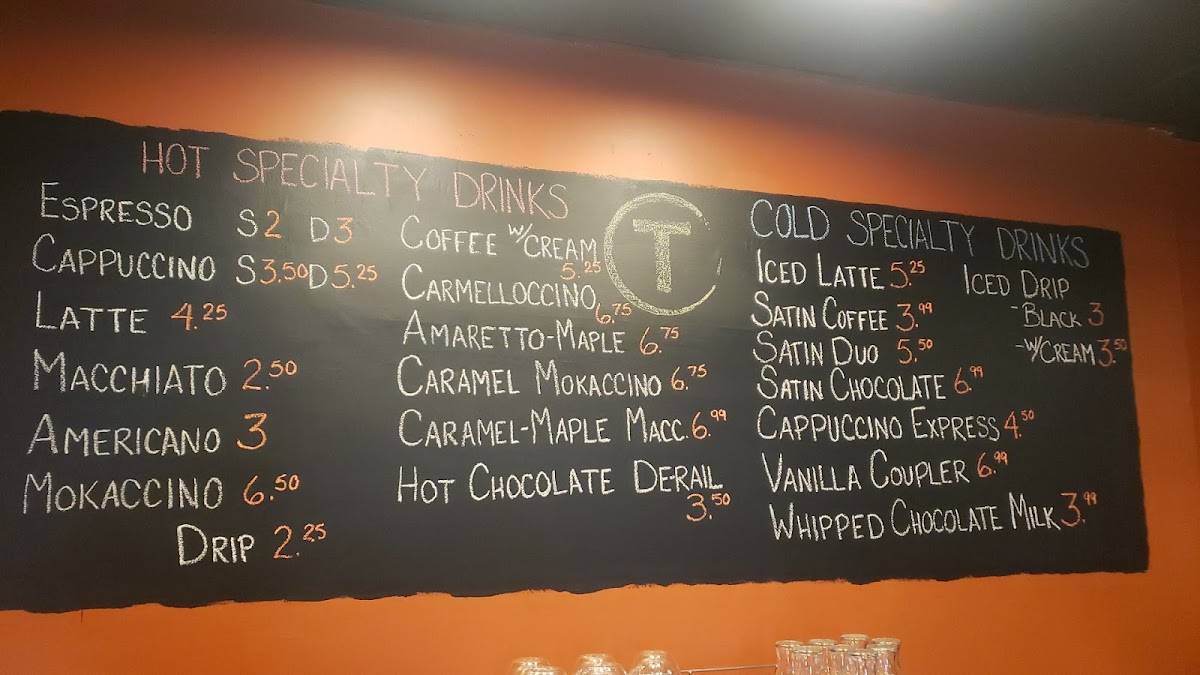 HOT SPECIALTY DRINKS
ESPRESSO S 2 D 3
CAPPUCCINO S 3.50 D 5.25
LATTE 4.25
MACCHIATO 2.50
AMERICANO 3
MOKACCINO 6.50
DRIP 2.25
COFFEE W/CREAM
5.25
CARMELLOCCINO
6.75
AMARETTO-MAPLE 6.75
CARAMEL MOKACCINO 6.75
CARAMEL-MAPLE MACC. 6.99
HOT CHOCOLATE DERAIL
3.50
T
COLD SPECIALTY DRINKS
ICED LATTE 5.25
SATIN COFFEE 3.99
SATIN DUO 5.50
SATIN CHOCOLATE 6.99
CAPPUCCINO EXPRESS 4.50
VANILLA COUPLER 6.99
WHIPPED CHOCOLATE MILK 3.99
ICED DRIP
-BLACK 3
-W/CREAM 3.50